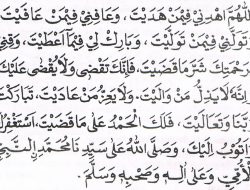 اَللّٰهُمَّ اهْدِنِيْ فِيْمَنْ هَدَيْتَ، وَعَافِنِيْ فِيْمَنْ عَافَيْتَ
تَوَلَّنِيْ فِيْمَنْ تَوَلَّيْتَ، وَبَارِكْ لِيْ فِيْمَا أَعْطَيْتَ، وَقِنِيْ
حْمَتِكَ شَرَّ مَا قَضَيْتَ، فَإِنَّكَ تَقْضِيْ وَلَا يُقْضٰى عَلَيْكَ
نَّهُ لَا يَذِلُّ مَنْ وَالَيْتَ، وَلَا يَعِزُّ مَنْ عَادَيْتَ، تَبَارَكْتَ
نَا وَتَعَالَيْتَ، فَلَكَ الْحَمْدُ عَلٰى مَا قَضَيْتَ، اَسْتَغْفِرُكَ
اَتُوْبُ اِلَيْكَ، وَصَلَّى اللّٰهُ عَلٰى سَيِّدِنَا مُحَمَّدٍ النَّبِيِّ
لْأُمِّيِّ وَعَلٰى اٰلِهِ وَصَحْبِهِ وَسَلَّمَ.